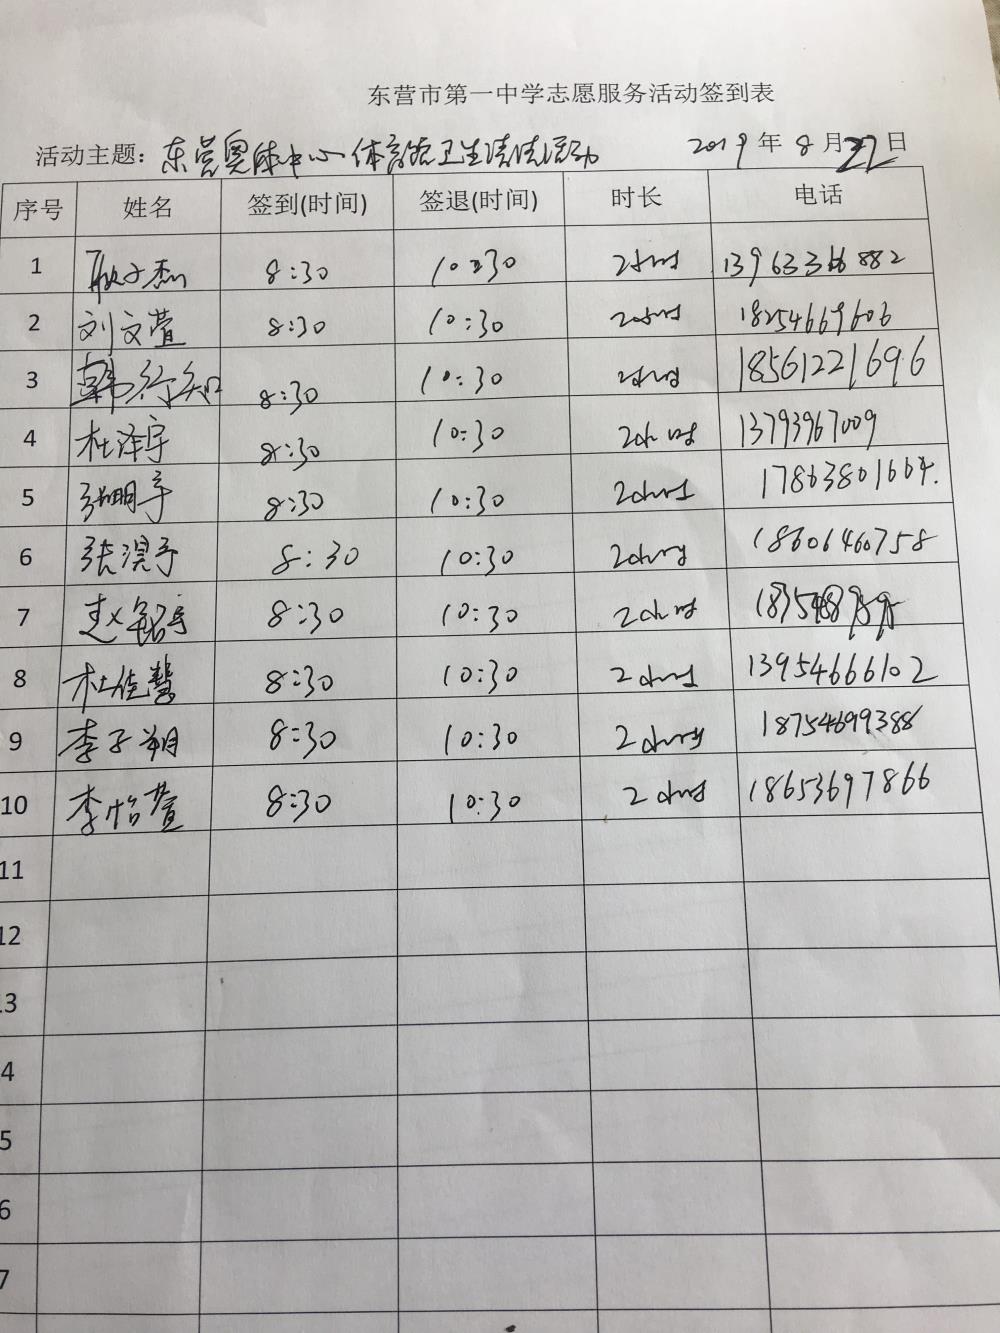 东营市第一中学志愿服务活动签到表
活动主题：东营奥体中心体育馆卫生清洁活动 2019年8月22日
序号 姓名 签到(时间) 签退(时间) 时长 电话
1 耿子杰 8:30 10:30 2小时 13963366882
2 刘文萱 8:30 10:30 2小时 18254669606
3 韩行知 8:30 10:30 2小时 18561221696
4 杜泽宇 8:30 10:30 2小时 13793967009
5 张明宇 8:30 10:30 2小时 17863801664.
6 张淏予 8:30 10:30 2小时 18606460758
7 赵铭宇 8:30 10:30 2小时
8 杜佳慧 8:30 10:30 2小时 13954666102
9 李子翔 8:30 10:30 2小时 18754699388
10 李怡萱 8:30 10:30 2小时 18653697866
11
12
13
4
5
6
7